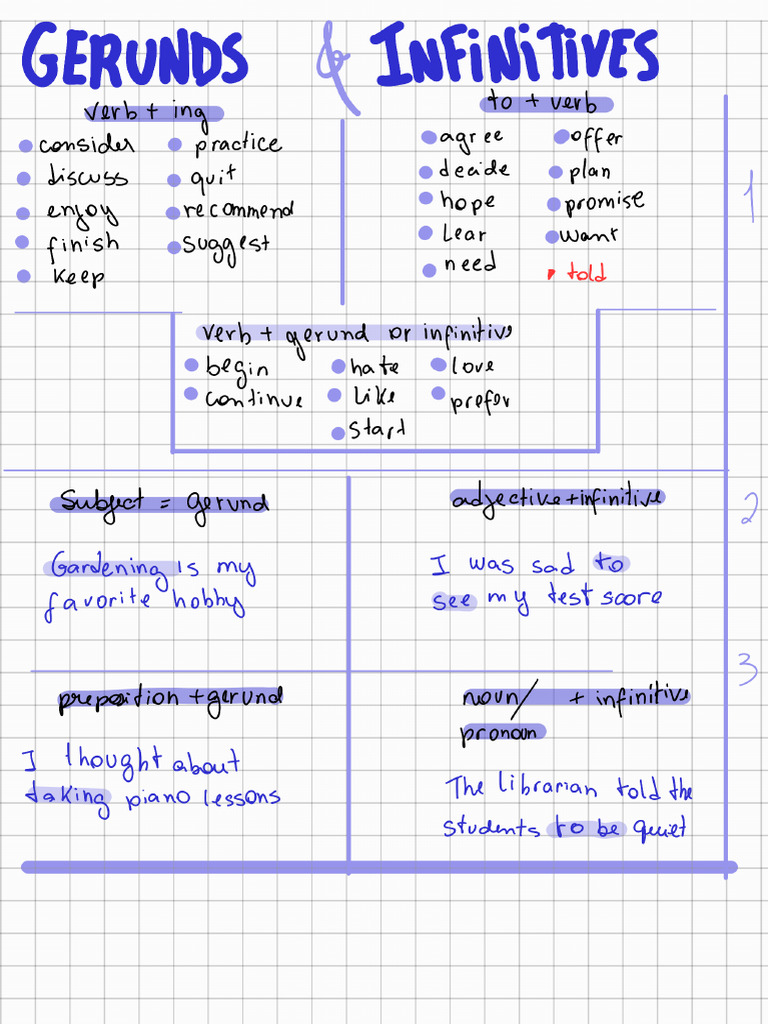 GERUNDS & INFINITIVES
verb + ing
consider
discuss
enjoy
finish
keep
practice
quit
recommend
suggest
to + verb
agree
decide
hope
Lear
need
offer
plan
promise
want
told
1
verb + gerund or infinitive
begin
continue
hate
like
start
love
prefer
2
Subject = gerund
Gardening is my
favorite hobby
adjective + infinitive
I was sad to
see my test score
3
preposition + gerund
I thought about
taking piano lessons
noun/ + infinitive
pronoun
The librarian told the
students to be quiet